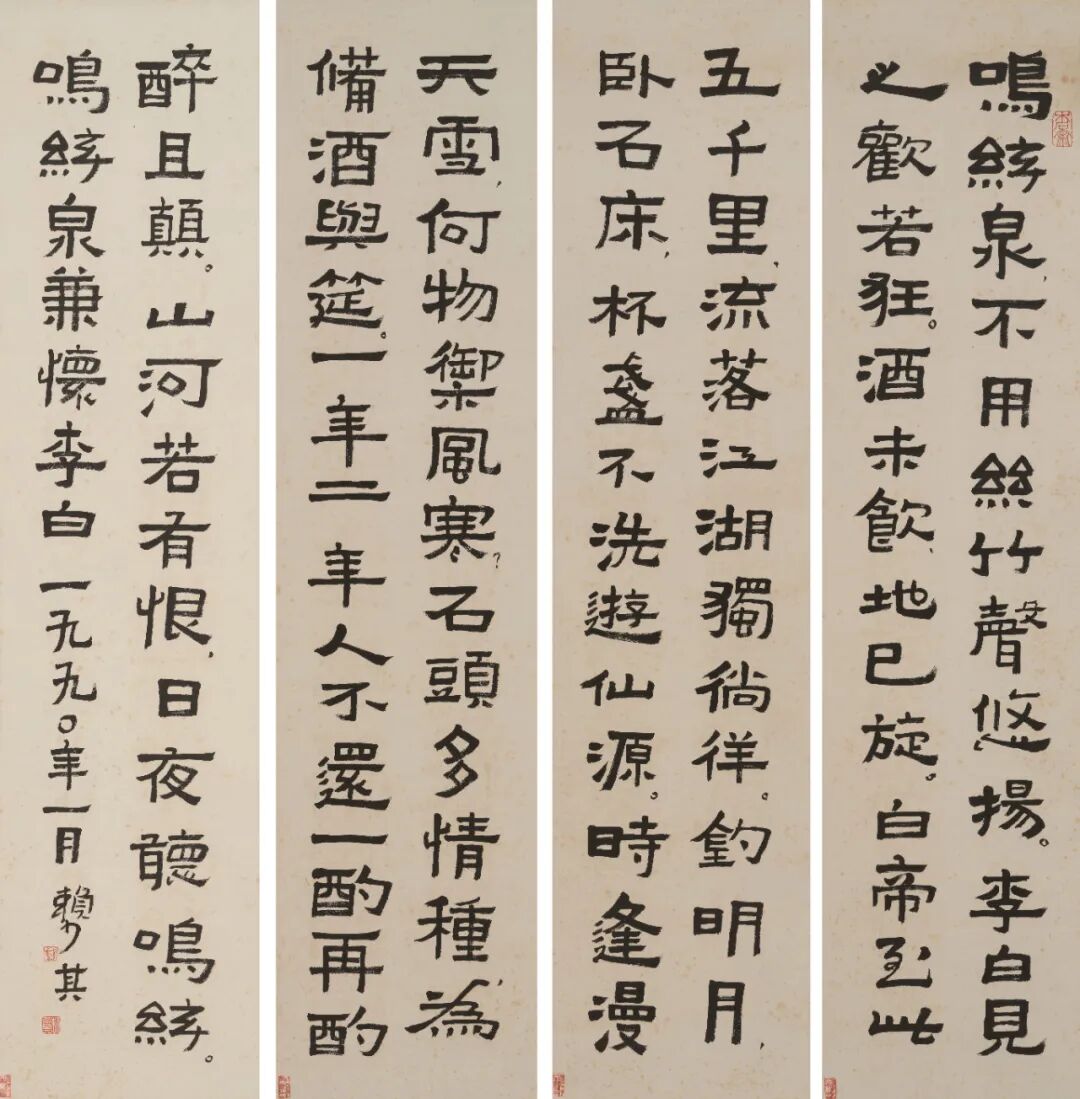 鳴絃泉，不用絲竹聲悠揚。李白見
之歡若狂。酒未飲，地已旋。白帝至此
五千里，流落江湖獨徜徉。釣明月，
卧石床，杯盞不洗遊仙源。時逢漫
天雪，何物禦風寒？石頭多情種，為
備酒與筵。一年二年人不還一酌再酌
醉且顛。山河若有恨，日夜聽鳴絃。
鳴絃泉兼懷李白 一九九〇年一月 賴少其